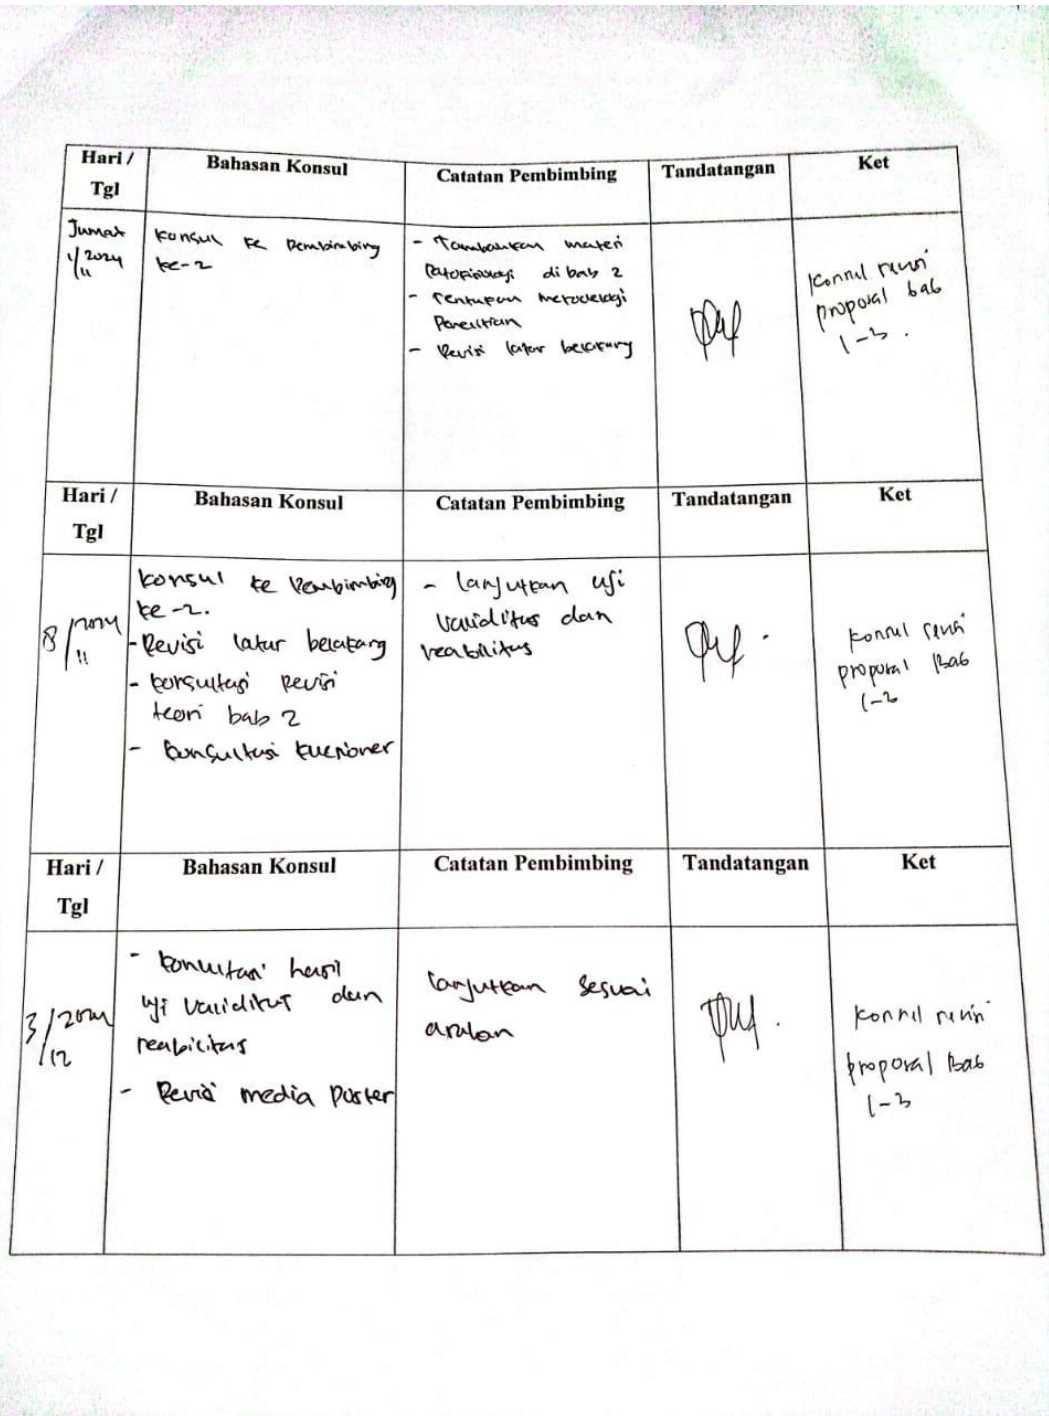 Hari / Tgl
Bahasan Konsul
Catatan Pembimbing
Tandatangan
Ket
Jumat
1/2024
11
Konsul ke Pembimbing
ke-2
- Tambahkan materi
Patofisiologi di bab 2
- Tentukan metodelogi
Penelitian
- Revisi latar belakang
Konsul revisi
proposal bab
1-3.
Hari / Tgl
Bahasan Konsul
Catatan Pembimbing
Tandatangan
Ket
8/2024
11
Konsul ke Pembimbing
ke-2.
- Revisi latar belakang
- konsultasi Revisi
teori bab 2
- konsultasi kuesioner
- lanjutkan uji
validitas dan
reabilitas
Konsul revisi
proposal Bab
1-3
Hari / Tgl
Bahasan Konsul
Catatan Pembimbing
Tandatangan
Ket
3/2024
12
- konsultasi hasil
uji validitas dan
reabilitas
- Revisi media Poster
lanjutkan sesuai
arahan
Konsul revisi
proposal Bab
1-3